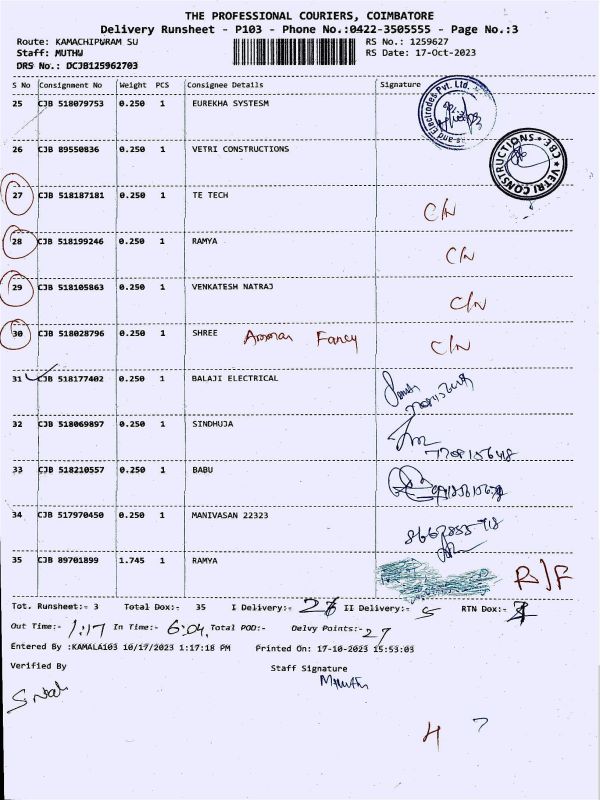 THE PROFESSIONAL COURIERS, COIMBATORE
Delivery Runsheet - P103 - Phone No.:0422-3505555 - Page No.:3
Route: KAMACHIPURAM SU RS No.: 1259627
Staff: MUTHU RS Date: 17-Oct-2023
DRS No.: DCJB125962703
S No Consignment No Weight PCS Consignee Details Signature
25 CJB 518079753 0.250 1 EUREKHA SYSTESM
and Electrodes Pvt. Ltd.
26 CJB 89550836 0.250 1 VETRI CONSTRUCTIONS
VETRI CONSTRUCTIONS ★ CBE ★
27 CJB 518187181 0.250 1 TE TECH C/N
28 CJB 518199246 0.250 1 RAMYA C/N
29 CJB 518105863 0.250 1 VENKATESH NATRAJ C/N
30 CJB 518028796 0.250 1 SHREE Amman Fancy C/N
31 CJB 518177402 0.250 1 BALAJI ELECTRICAL
32 CJB 518069897 0.250 1 SINDHUJA
33 CJB 518210557 0.250 1 BABU
34 CJB 517970450 0.250 1 MANIVASAN 22323
35 CJB 89701899 1.745 1 RAMYA R/F
Tot. Runsheet:- 3 Total Dox:- 35 I Delivery:- II Delivery:- 5 RTN Dox:-
Out Time:- 1:17 In Time:- 6:04 Total POD:- Delvy Points:- 27
Entered By :KAMALA103 10/17/2023 1:17:18 PM Printed On: 17-10-2023 15:53:03
Verified By Staff Signature
4 7